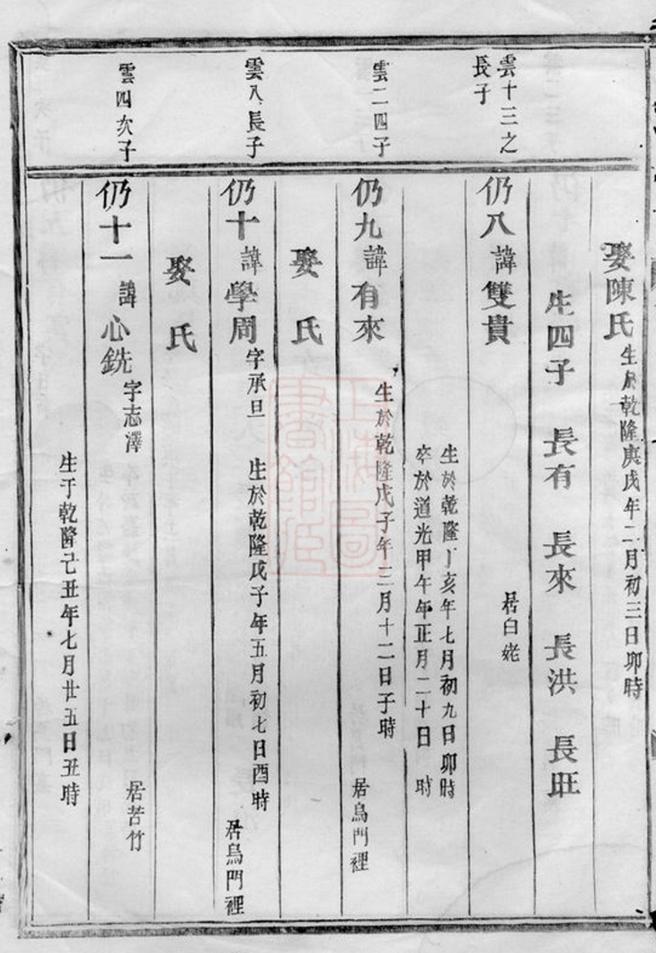 娶陳氏 生於乾隆庚戌年二月初三日卯時
生四子 長有 長來 長洪 長旺
雲十三之長子
仍八 諱雙貴 居白姥
生於乾隆丁亥年七月初九日卯時
卒於道光甲午年正月二十日 時
雲二四子
仍九 諱有來 生於乾隆戊子年三月十二日子時 居烏門裡
娶 氏
雲八長子
仍十 諱學周 字承旦 生於乾隆戊子年五月初七日酉時 居烏門裡
娶 氏
雲四次子
仍十一 諱心銑 字志澤 居苦竹
生于乾隆己丑年七月廿五日丑時